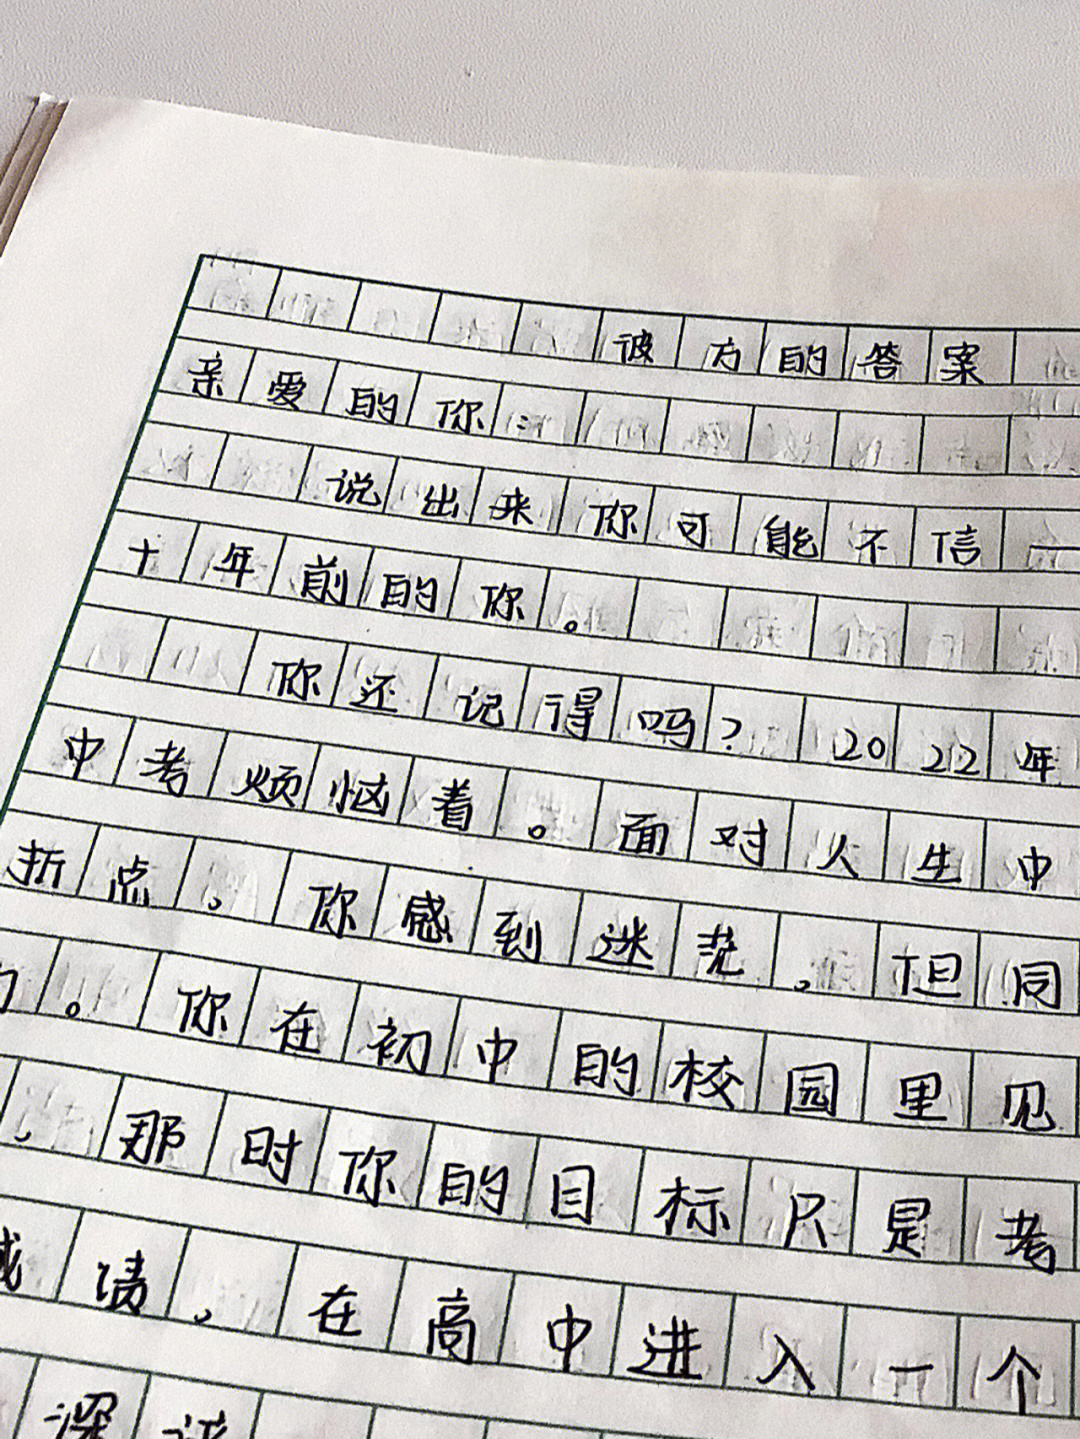 彼方的答案
亲爱的你:
说出来你可能不信一
十年前的你。
你还记得吗?2022年
中考烦恼着。面对人生中
折点,你感到迷茫,但同
。你在初中的校园里见
,那时你的目标只是考
成绩,在高中进入一个
深